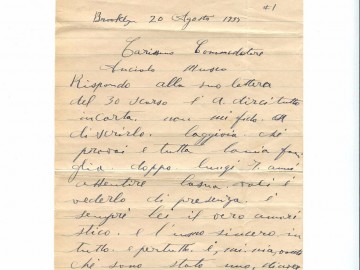 #1
Brooklyn 20 Agosto 1935
Carissimo Commendatore
Anciolo Musco
Rispondo alla sua lettera
del 30 scorso e a. dirci tutto
incarta. non mi fido.
di scrirlo. laggioia che
provai e tutta la mia fam
glia. doppo lungi 7. anni
assentire lasua, voli è
vederlo di presenza. è
sempri lei il vero amuri
stico. e l'uomo sincero in
tutto. e pertutto. è, mi,
che sono stato uno,